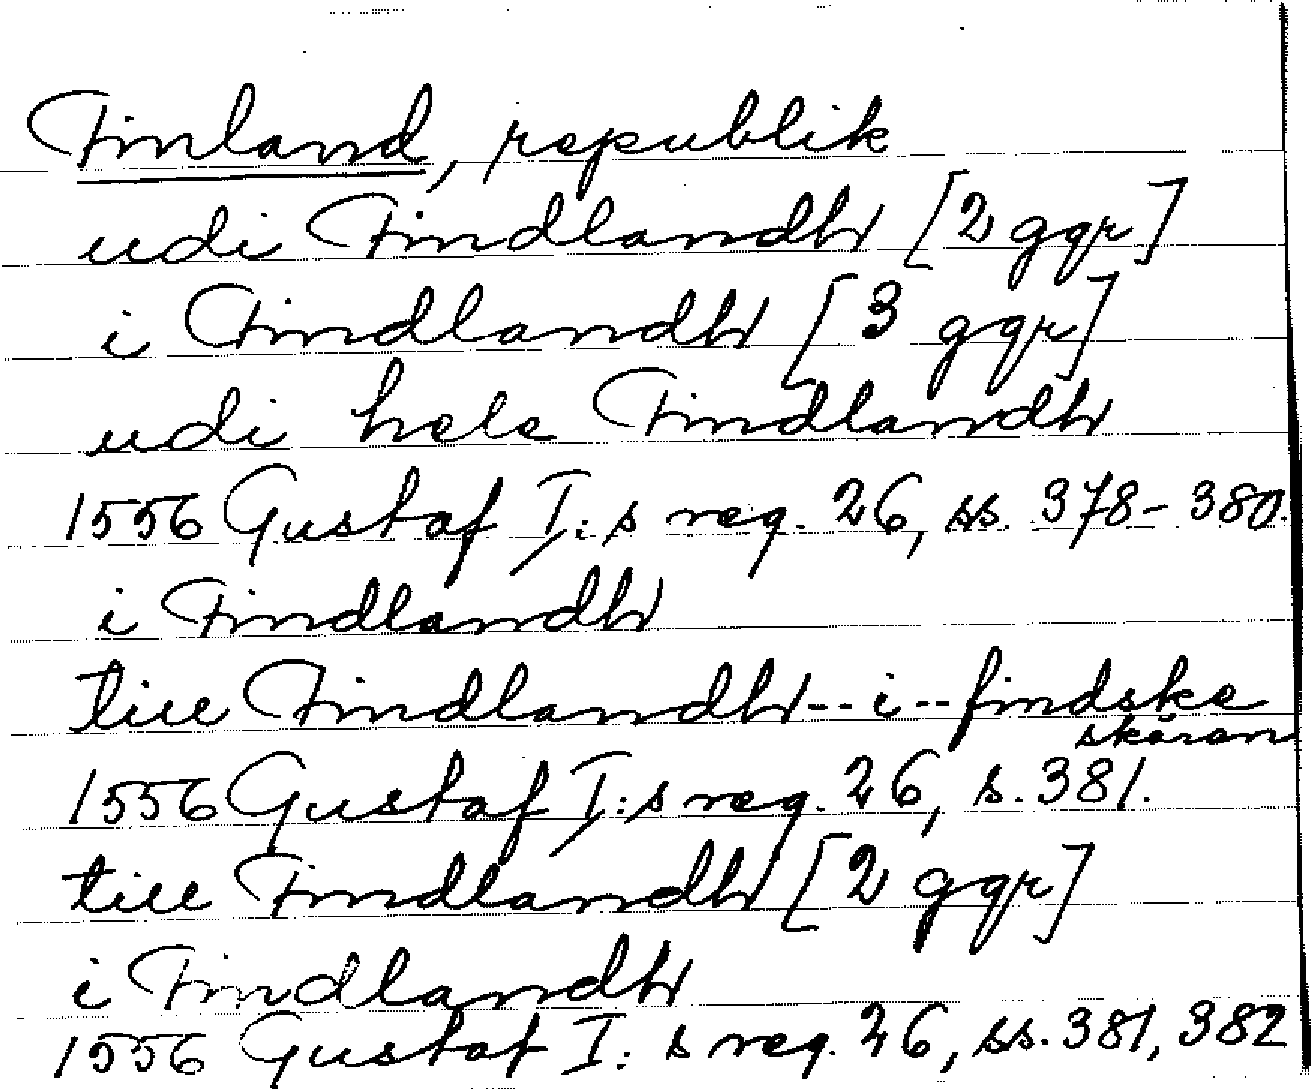 Finland, republik
udi Findlandh [2 ggr]
i Findlandh [3 ggr]
udi hele Findlandh
1556 Gustaf I:s reg. 26, ss. 378-380.
i Findlandh
till Findlandh--i--findske
skäran
1556 Gustaf I:s reg. 26, s. 381.
till Findlandh [2 ggr]
i Findlandh
1556 Gustaf I:s reg. 26, ss. 381, 382